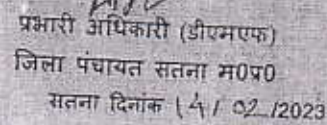 प्रभारी अधिकारी (डीएमएफ)
जिला पंचायत सतना म0प्र0
सतना दिनांक 14/ 02 /2023